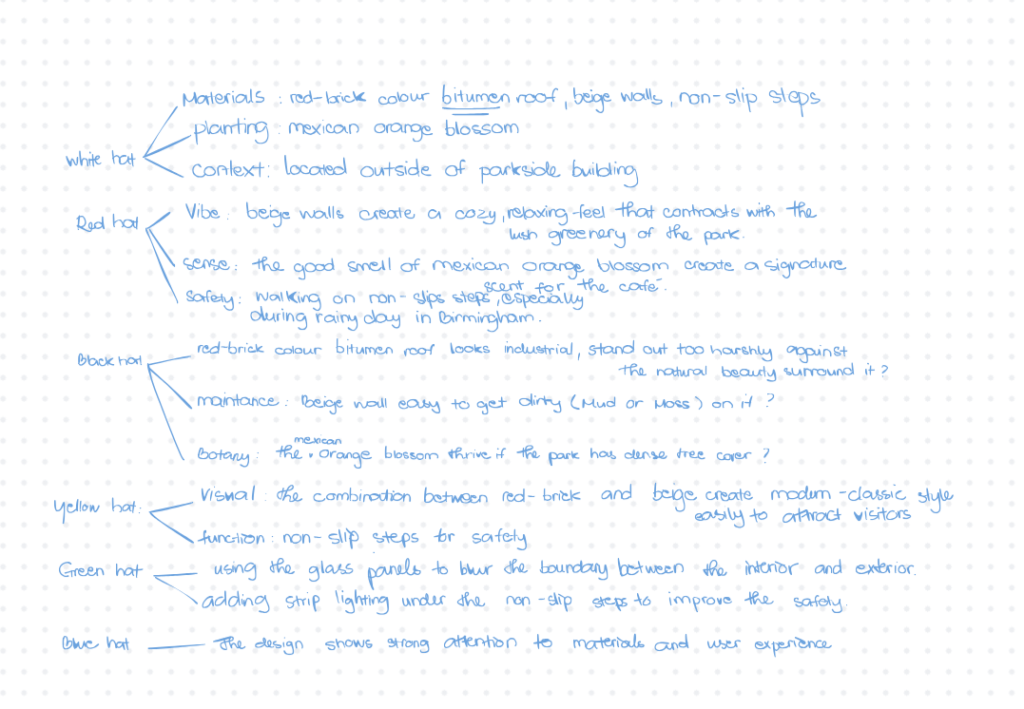 Materials : red-brick colour bitumen roof, beige walls, non-slip steps
planting : mexican orange blossom
white hat
context : located outside of parkside building
Red hat
Vibe : beige walls create a cozy, relaxing feel that contracts with the
lush greenery of the park.
sense : the good smell of mexican orange blossom create a signature
scent for the café.
safety : walking on non-slips steps, especially
during rainy day in Birmingham.
Black hat
red-brick colour bitumen roof looks industrial, stand out too harshly against
the natural beauty surround it ?
maintance : Beige wall easy to get dirty (Mud or Moss) on it ?
Botany : the mexican orange blossom thrive if the park has dense tree cover ?
Yellow hat :
Visual : the combination between red-brick and beige create modern-classic style
easily to attract visitors
function : non-slip steps for safety
Green hat
using the glass panels to blur the boundary between the interior and exterior.
adding strip lighting under the non-slip steps to improve the safety.
Blue hat
The design shows strong attention to materials and user experience